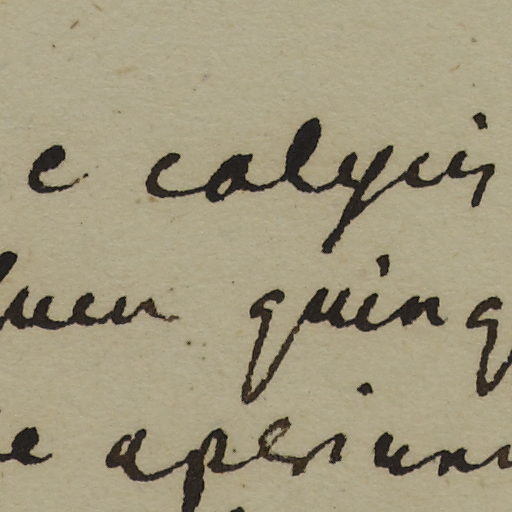 e calycis
quinq
e aperiun